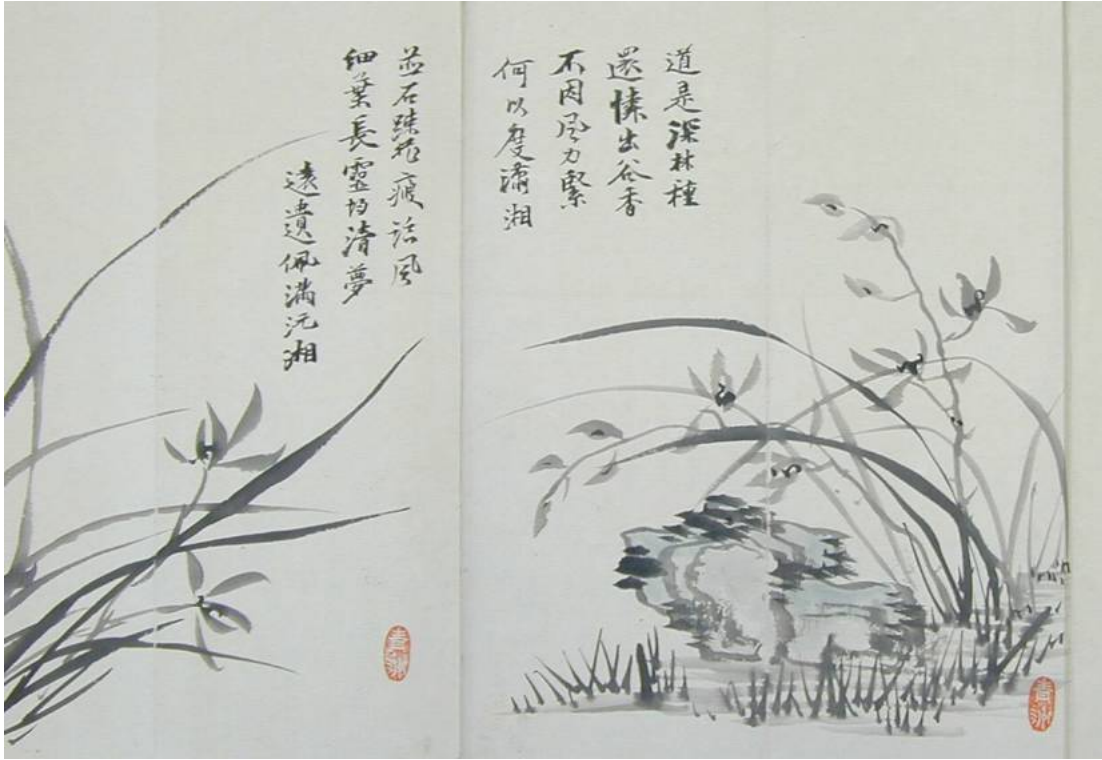 道是深林種
還憐出谷香
不因風力緊
何以度瀟湘
並石疎花瘦臨風
細葉長靈均清夢
遠遺佩滿沅湘